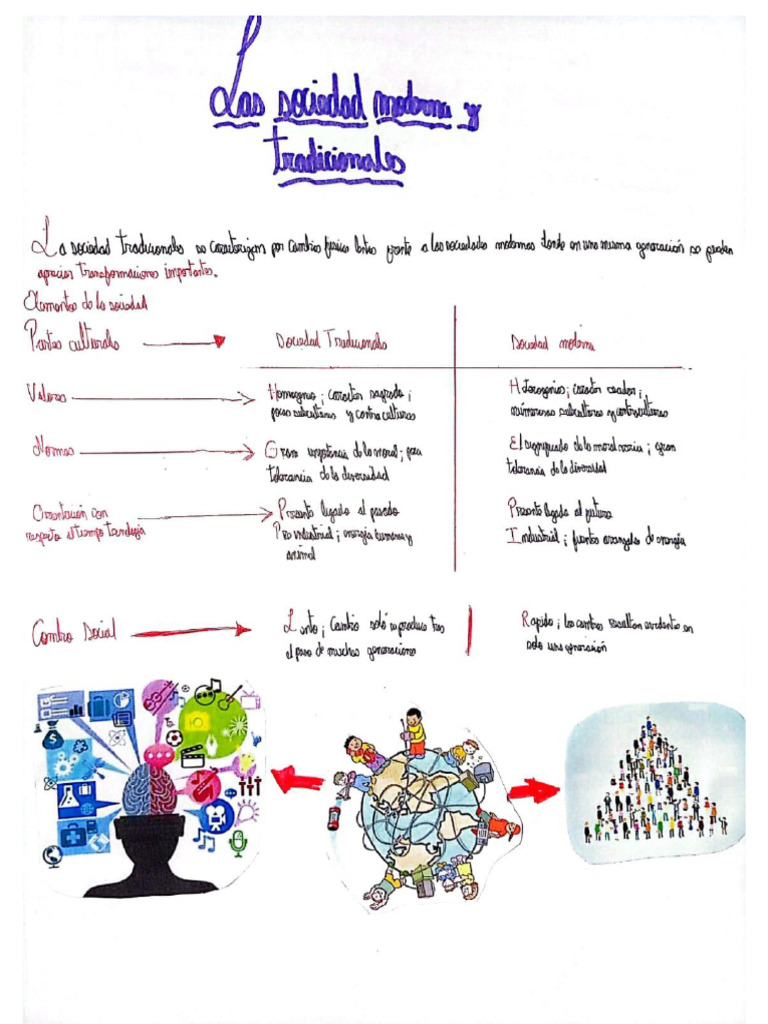 Las sociedad moderna y
tradicionales
La sociedad tradicionales se caracterizan por cambios lentos frente a las sociedades modernas donde en una misma generación se pueden
apreciar transformaciones importantes.
Elementos de la sociedad
Partes culturals
Sociedad Tradicionales
Sociedad moderna
Valores
Homogenio; caracter sagrado;
pocas subculturas y contraculturas
Heterogenios; caracter;
numerosas subculturas y contraculturas
Normas
Gran importancia de la moral; poca
tolerancia de la diversidad
El significado de la moral varia; gran
tolerancia de la diversidad
Orientación con
respecto al tiempo
Presente ligado al pasado
Pre industrial; energia humana y
animal
Presente ligado al futuro
Industrial; fuentes de energia
Cambio Social
Lento; Cambio solo se produce tras
el paso de muchas generaciones
Rapido; los cambios resultan evidentes en
solo una generación